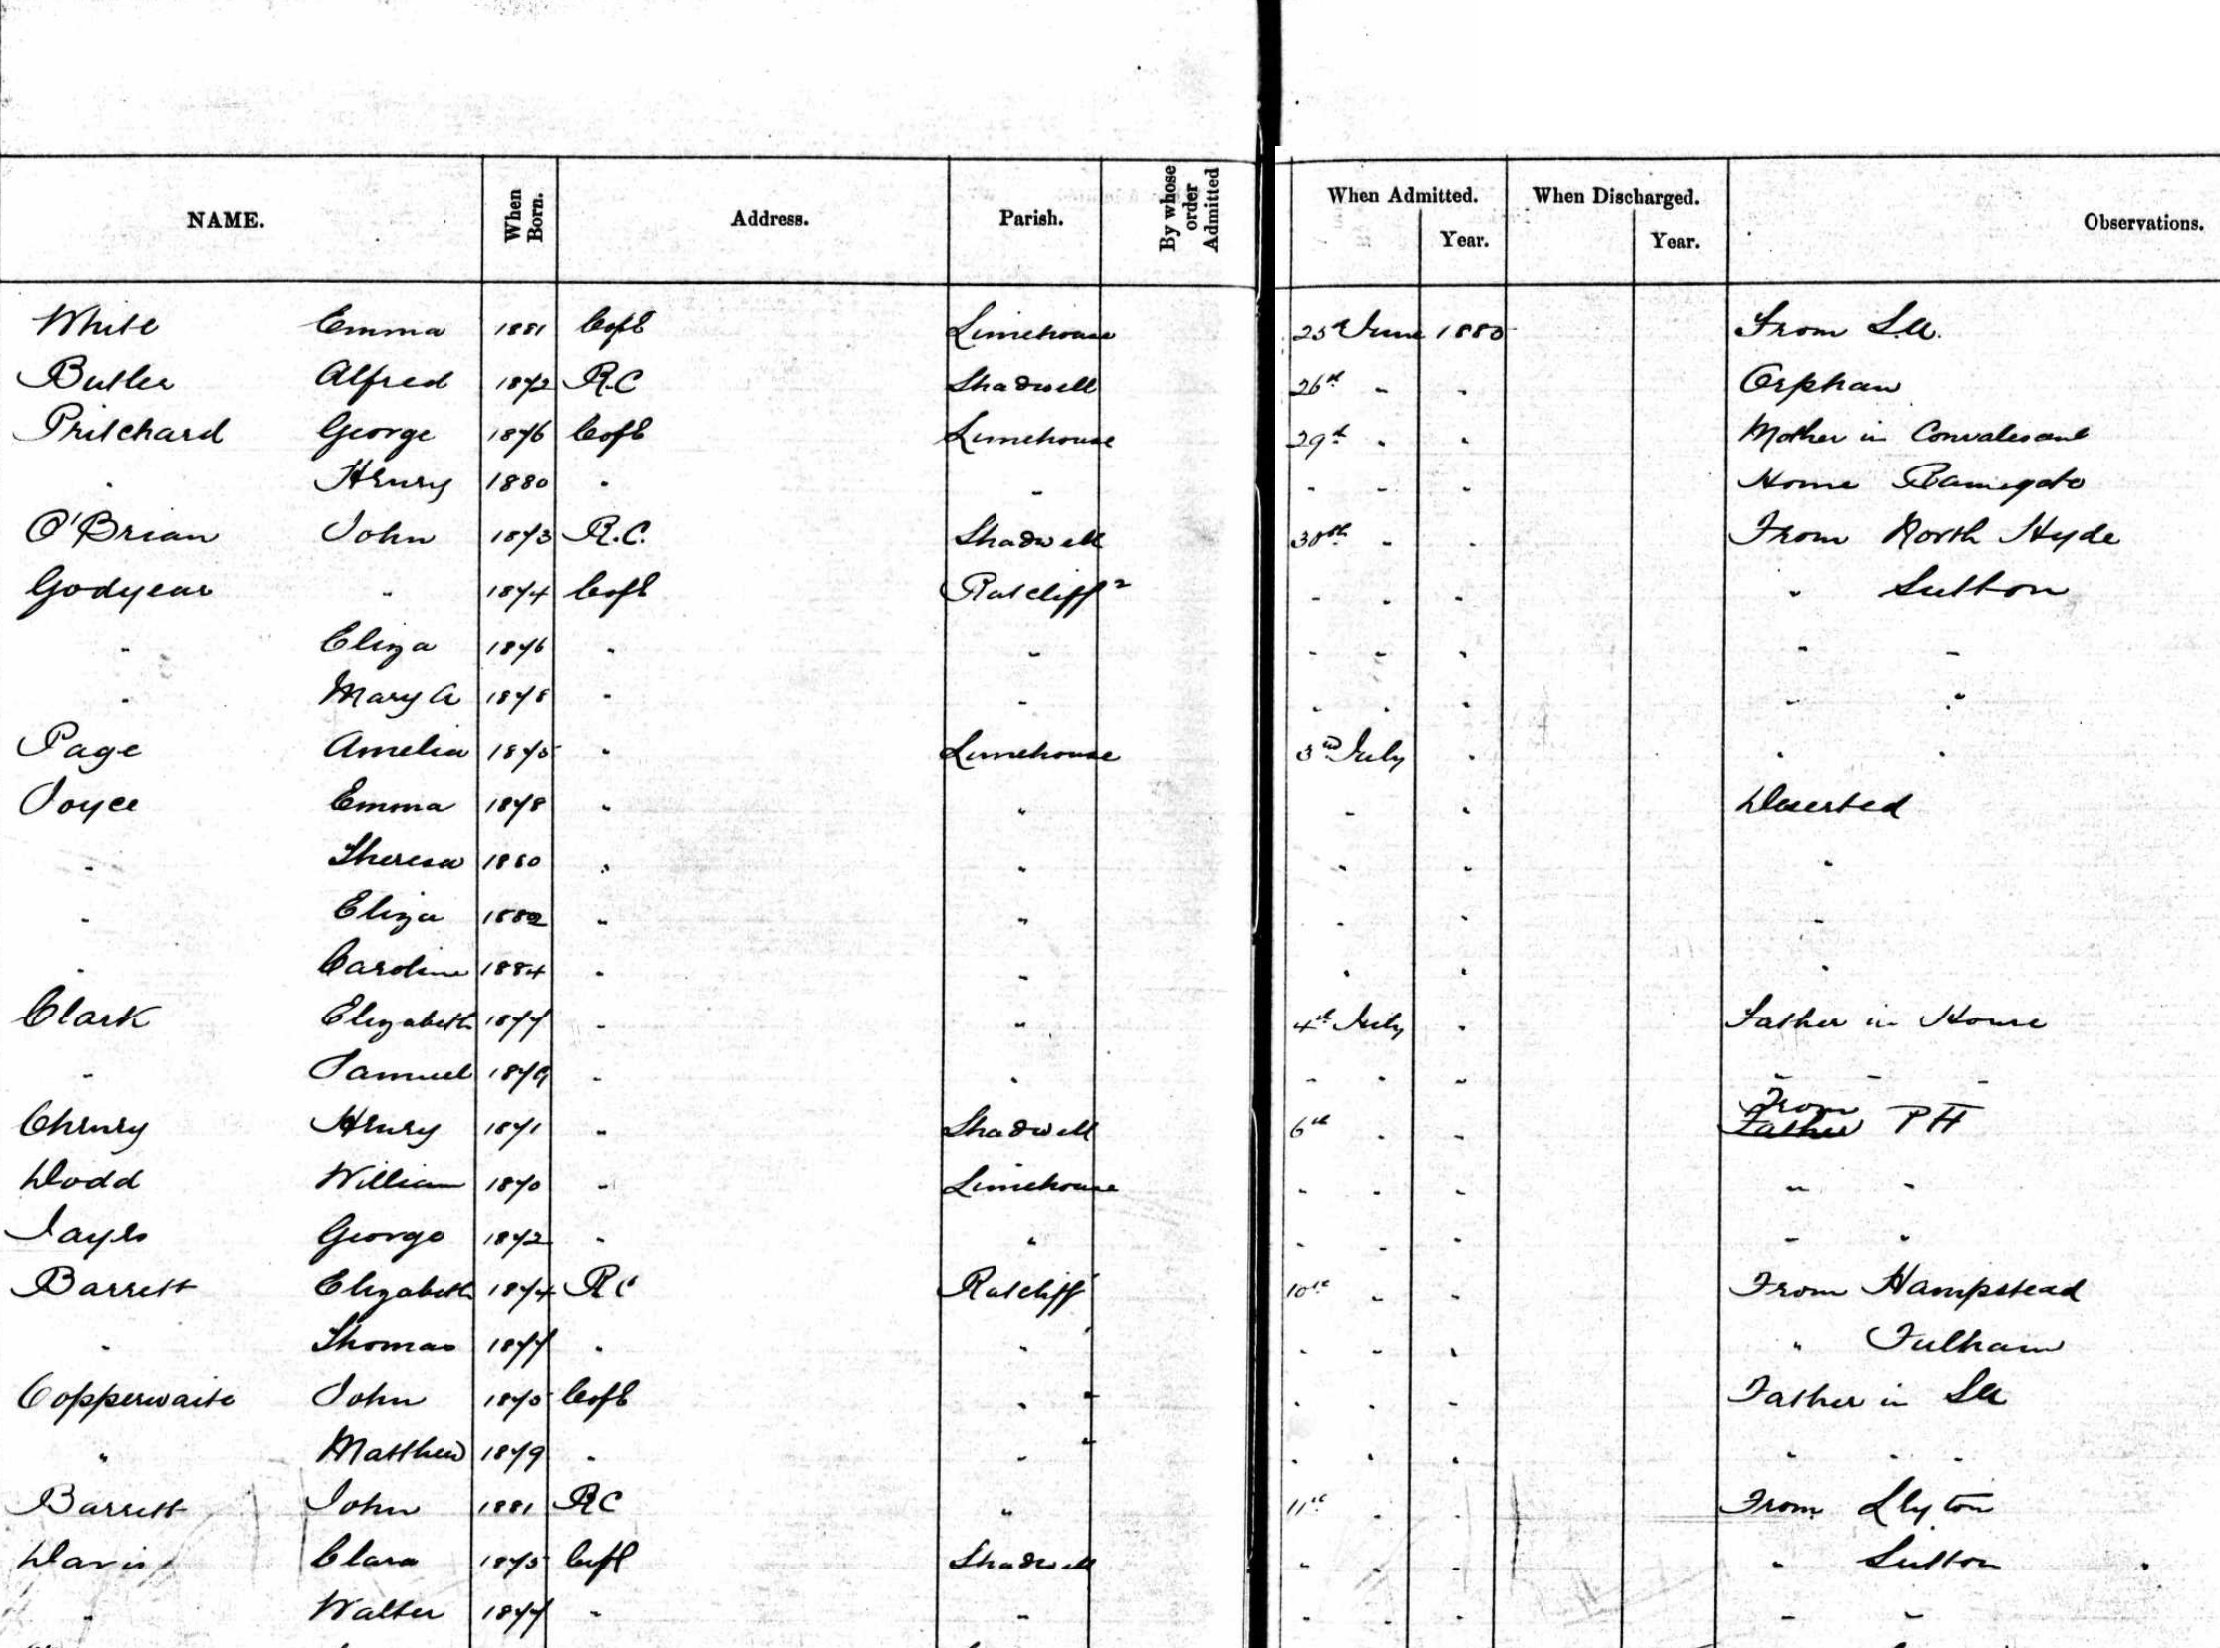 NAME. When Born. Address. Parish. By whose order Admitted When Admitted. Year. When Discharged. Year. Observations.
White Emma 1881 CofE Limehouse 25th June 1885 From
Butler Alfred 1872 R.C Shadwell 26th " " Orphan
Pritchard George 1876 CofE Limehouse 29th " " Mother in Convalesant
" Henry 1880 " " " " " Home Ramsgate
O'Brian John 1873 R.C. Shadwell 30th " " From North Hyde
Godyear " 1874 CofE Ratcliff " " " " Sutton
" Eliza 1876 " " " " " " "
" Mary A 1878 " " " " " " "
Page Amelia 1875 " Limehouse 3rd July " " "
Joyce Emma 1878 " " " " Deserted
" Theresa 1880 " " " " "
" Eliza 1882 " " " " "
" Caroline 1884 " " " " "
Clark Elizabeth 1877 " " 4th July " Father in House
" Samuel 1879 " " " " " " " "
Chenry Henry 1871 " Shadwell 6th " " From Father PH
Dodd William 1870 " Limehouse " " " " "
George 1872 " " " " " " "
Barrett Elizabeth 1874 RC Ratcliff 10th " " From Hampstead
" Thomas 1877 " " " " " " Fulham
Copperwaite John 1875 CofE " " " " Father in
" Matthew 1879 " " " " " " " "
Barrett John 1881 RC " 11th " " From Llyton
Davis Clara 1875 CofE Shadwell " " " " Sutton
" Walter 1877 " " " " " " "